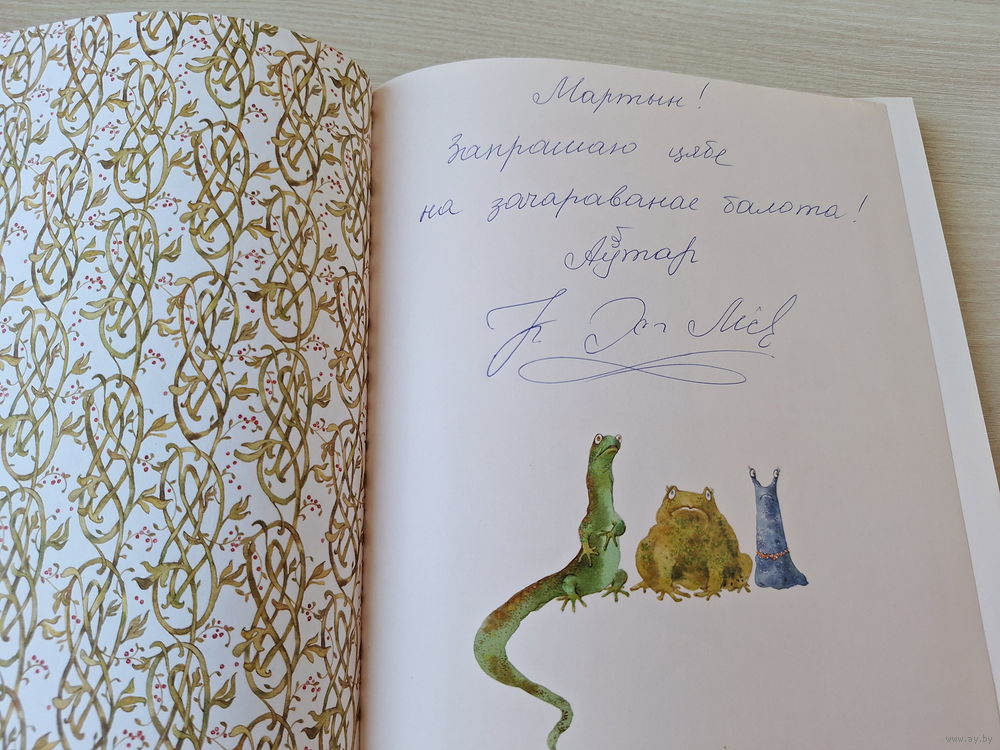 Мартын!
Запрашаю цябе
на зачараванае балота!
Аўтар
www.ay.by